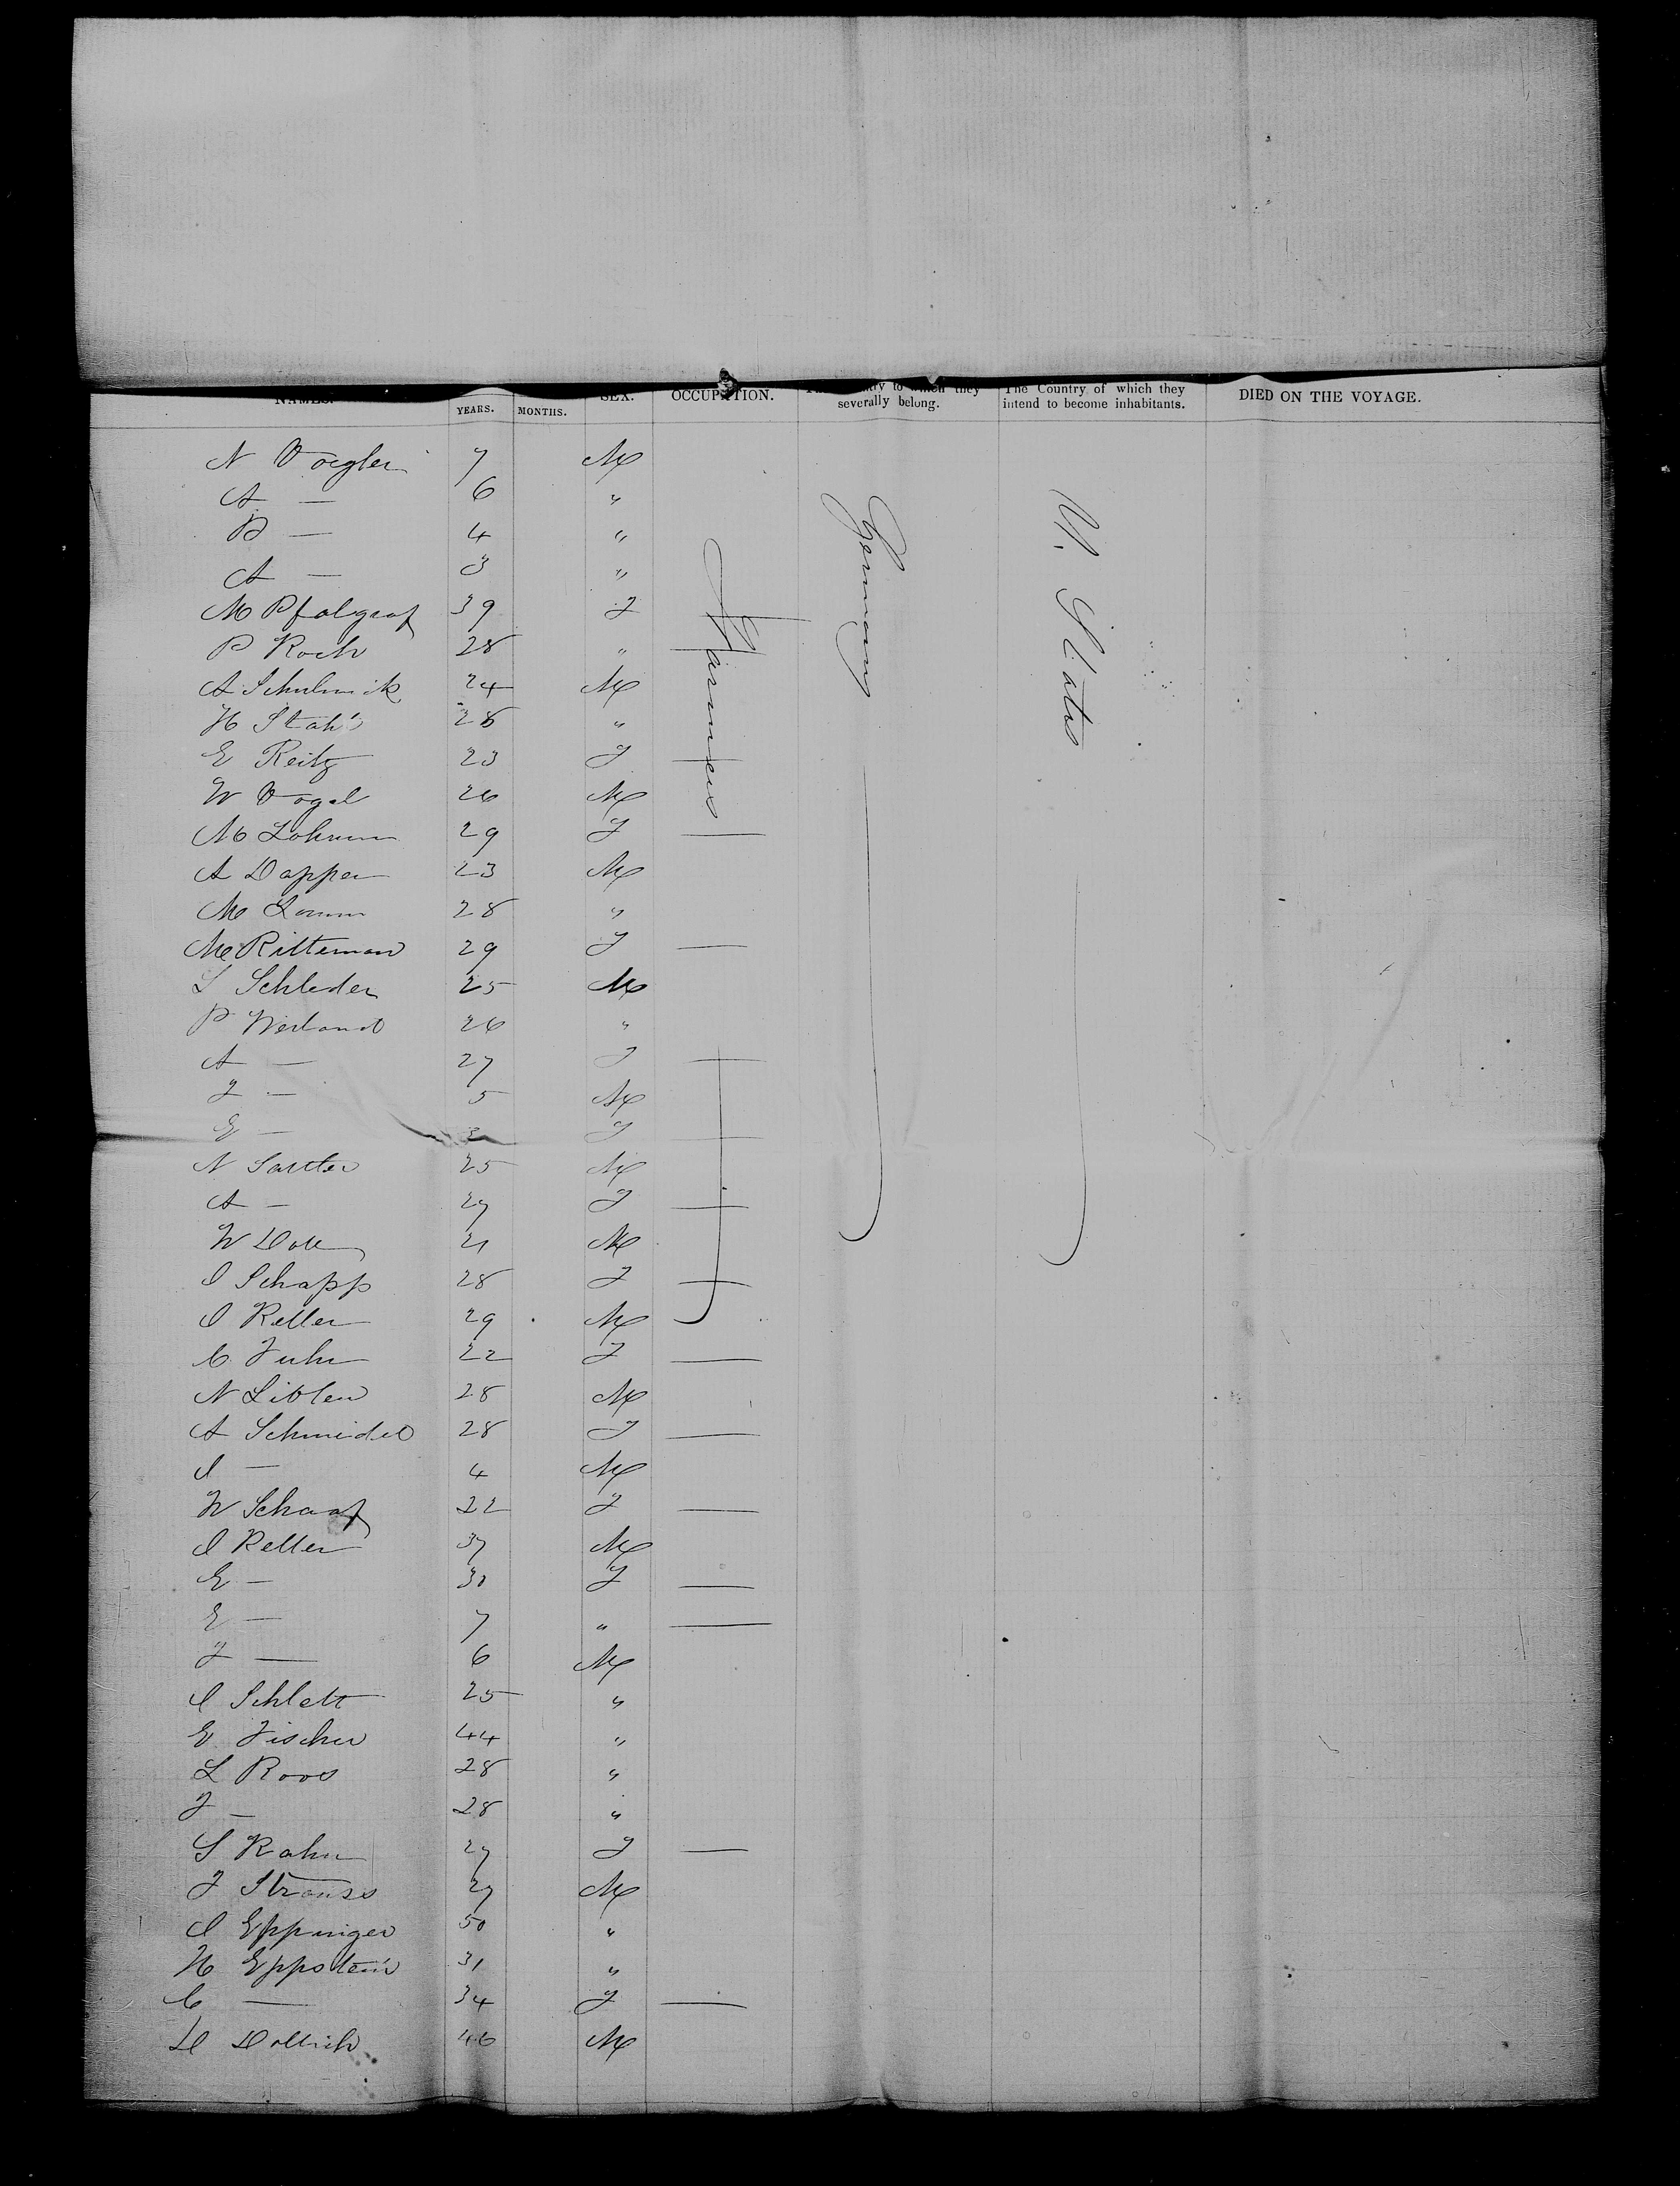 NAMES. YEARS. MONTHS. SEX. OCCUPATION. to which they severally belong. The Country of which they intend to become inhabitants. DIED ON THE VOYAGE.
Farmers
Germany
U. States
N Voegler 7 M
A — 6 "
P — 4 "
A — 3 "
M Pfalgraf 39 F
P Koch 28 "
A 24 M
H Stahl 28 "
E Reitz 23 F —
W Vogel 26 M
M 29 F —
A Dapper 23 M
M 28 "
M Ritteman 29 F —
L Schleder 25 M
P Weiland 26 "
A — 27 F —
F — 5 M
E — F —
N Sattler 25 M
A — 27 F —
W Doll 21 M
I Schapp 28 F —
I Keller 29 M
C Fuhr 22 F —
N Liblen 28 M
A Schmidel 28 F —
I — 4 M
W Schaaf 22 F —
I Keller 37 M
E — 30 F —
E — 7 " —
F — 6 M
I Schlett 25 "
E Fischer 44 "
L Roos 28 "
F — 28 "
S Kahn 27 F —
F Strauss 27 M
I Eppinger 50 "
H Eppstein 31 "
C — 34 F —
D Dollich 46 M